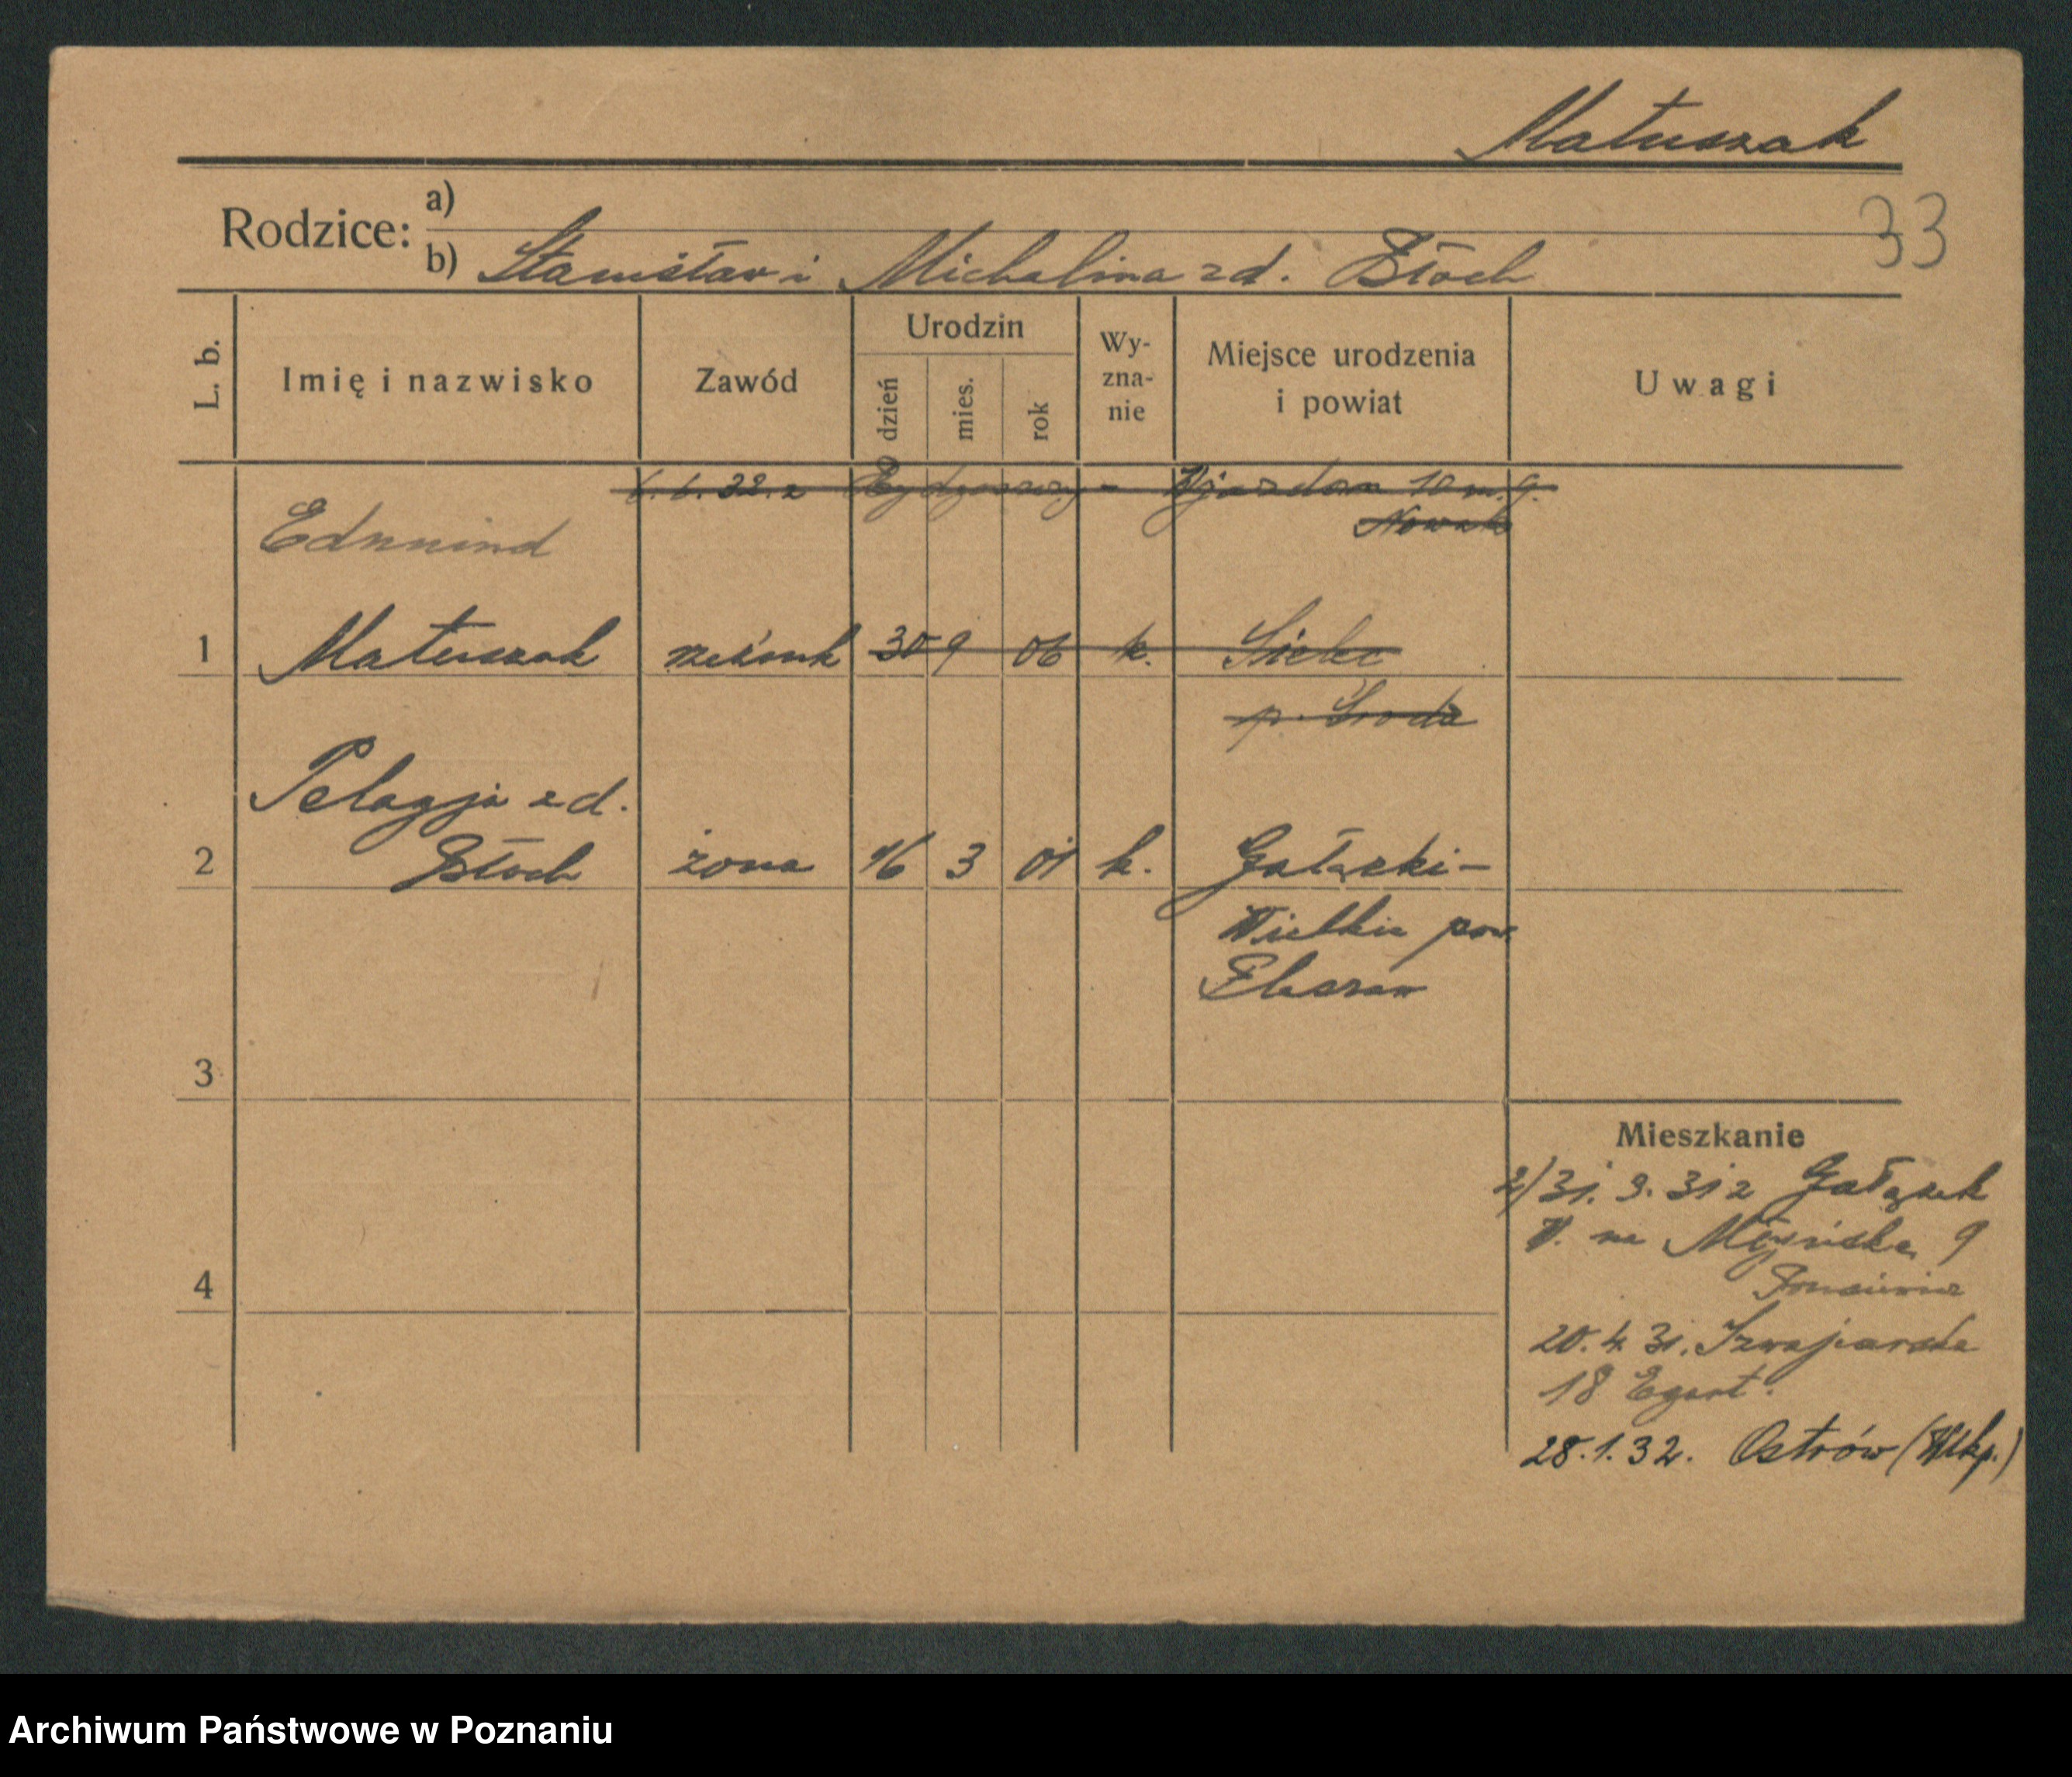 Matuszak
33
Rodzice:
a)
b) Stanisław i Michalina zd. Błoch
L. b.
Imię i nazwisko
Zawód
Urodzin
dzień
mies.
rok
Wy-
zna-
nie
Miejsce urodzenia
i powiat
Uwagi
6. 6. 32. z Bydgoszczy - Ujazdow 10 m. 9.
Nowak
Edmund
1 Matuszak 30 9 06 k. Sielec
p. Środa
Pelagja zd.
2 Błoch żona 16 3 01 k. Gałązki-
Wielkie pow.
Pleszew
3
4
Mieszkanie
2/ 31. 3. 31 z Gałązek
W. na Młyńska 9
20. 4. 31. Szwajcarska
18 Egert.
28. 1. 32. Ostrów (Wlkp.)
Archiwum Państwowe w Poznaniu